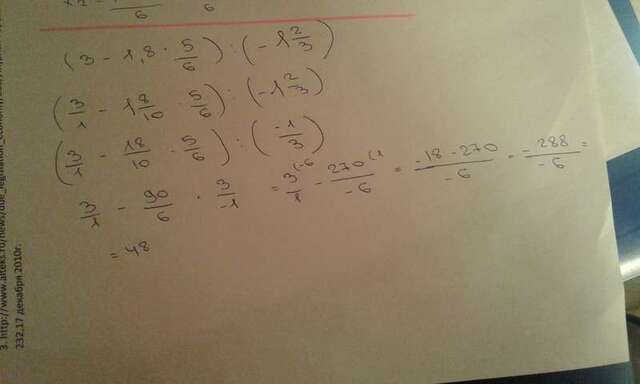 6 6
(3 - 1,8 · 5/6) : (-1 2/3)
(3/1 - 1 8/10 · 5/6) : (-1 2/3)
(3/1 - 18/10 · 5/6) : (-1/3)
3/1 - 90/6 · 3/-1 = 3/1 (-6 - 270/-6 (1 = -18-270/-6 = -288/-6 =
= 48
3. http://www.aiteks.ru/news/due_legislation_economy/
232,17 декабря 2010г.